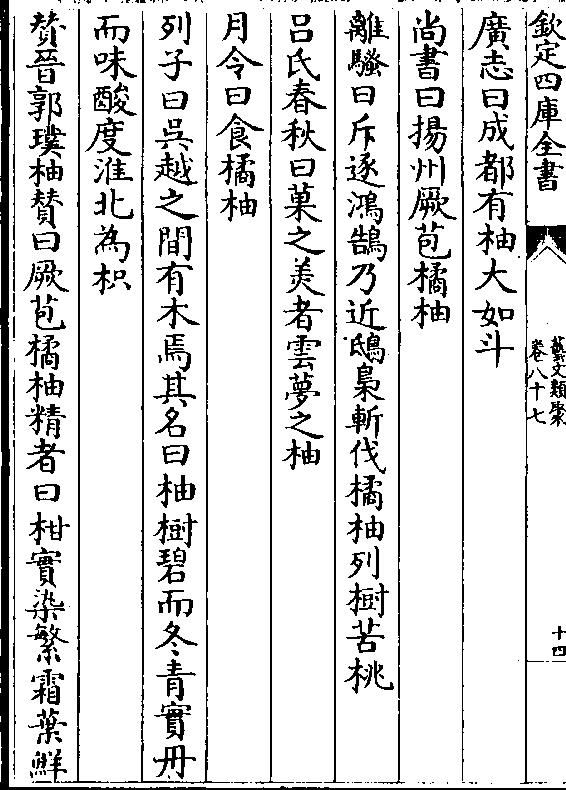 欽定四庫全書
藝文類聚
卷八十七
十四
廣志曰成都有柚大如斗
尚書曰揚州厥苞橘柚
離騷曰斥逐鴻鵠乃近鴟梟斬伐橘柚列樹苦桃
吕氏春秋曰菓之美者雲夢之柚
月令曰食橘柚
列子曰呉越之間有木焉其名曰柚樹碧而冬青實丹
而味酸度淮北為枳
賛晉郭璞柚賛曰厥苞橘柚精者曰柑實染繁霜葉鮮